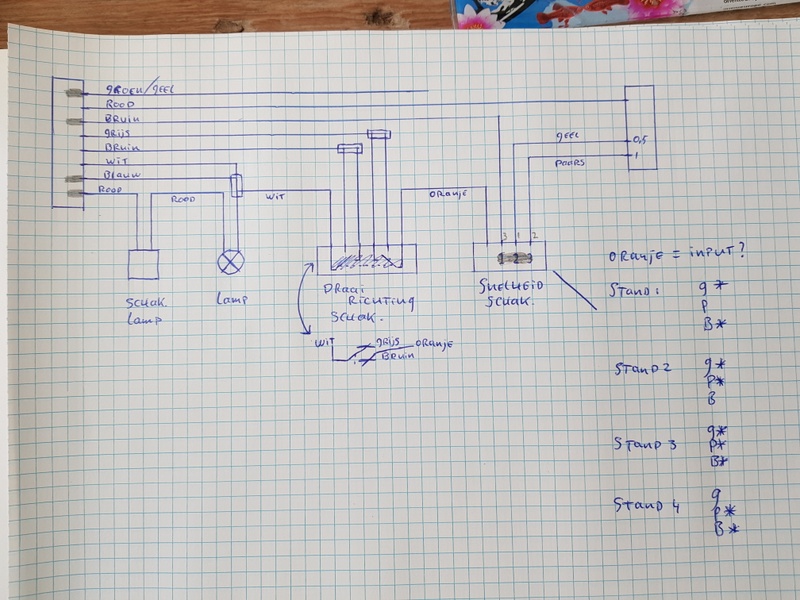 groen/geel
Rood
Bruin
grijs
Bruin
Wit
Blauw
Rood
Rood
Wit
Oranje
geel
Paars
0,5
1
3 1 2
1 2 3
Schak.
Lamp
Lamp
Draai
Richting
Schak.
Snelheid
Schak.
Wit
grijs
Oranje
Bruin
Oranje = input?
Stand 1 g *
P
B *
Stand 2 g *
P *
B
Stand 3 g *
P *
B *
Stand 4 g
P *
B *